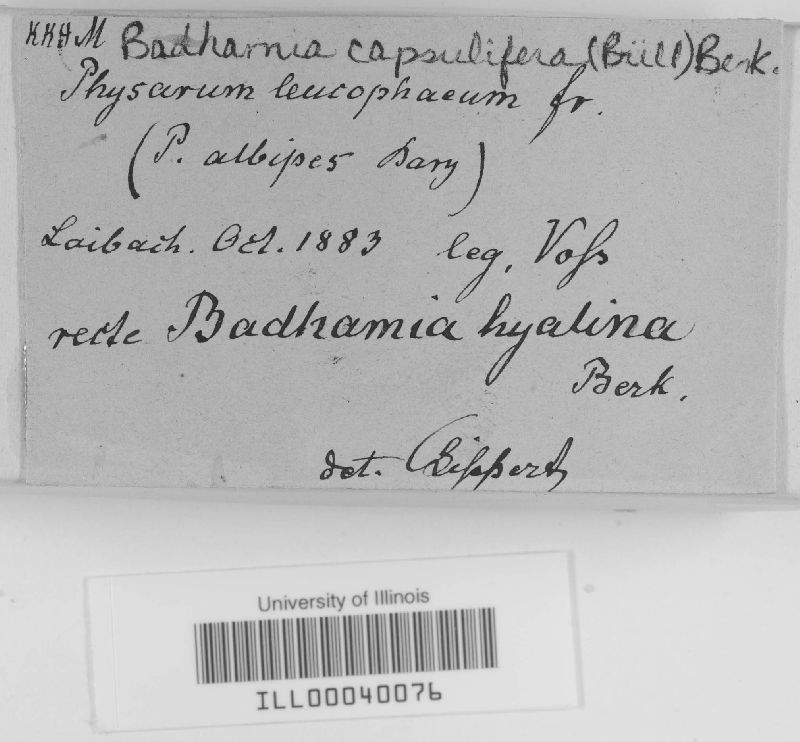 M Badhamia capsulifera (Bull) Berk.
Physarum leucophaeum fr.
(P. albipes Bary)
Laibach. Oct. 1883 leg, Voſs
recte Badhamia hyalina
Berk.
det.
University of Illinois
ILL00040076